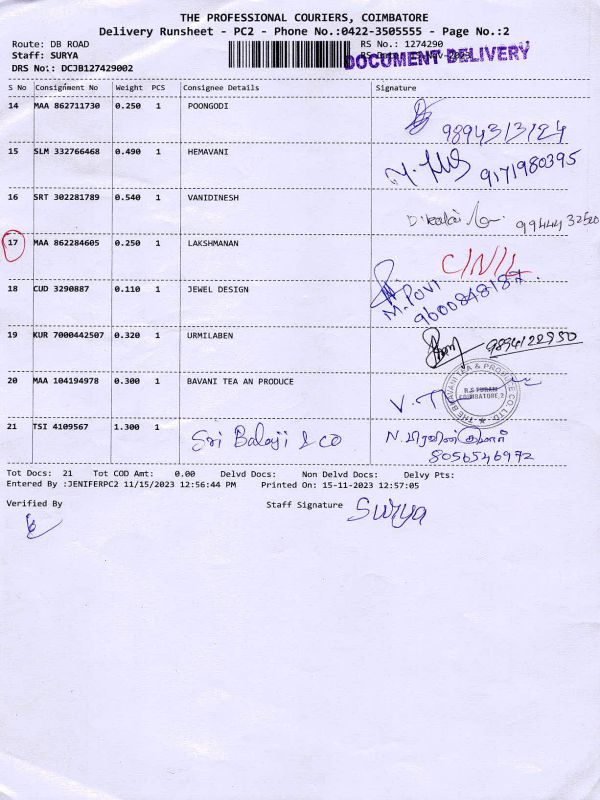 THE PROFESSIONAL COURIERS, COIMBATORE
Delivery Runsheet - PC2 - Phone No.:0422-3505555 - Page No.:2
Route: DB ROAD RS No.: 1274290
Staff: SURYA DOCUMENT DELIVERY
DRS No:: DCJB127429002
S No Consignment No Weight PCS Consignee Details Signature
14 MAA 862711730 0.250 1 POONGODI
15 SLM 332766468 0.490 1 HEMAVANI 9171980395
16 SRT 302281789 0.540 1 VANIDINESH
17 MAA 862284605 0.250 1 LAKSHMANAN C/N/L
18 CUD 3290887 0.110 1 JEWEL DESIGN M. POVI
9600848187
19 KUR 7000442507 0.320 1 URMILABEN
20 MAA 104194978 0.300 1 BAVANI TEA AN PRODUCE
R.S PURAM
COIMBATORE.2
21 TSI 4109567 1.300 1 Sri Balaji & co N. பிரவின்குமார்
8056546972
Tot Docs: 21 Tot COD Amt: 0.00 Delvd Docs: Non Delvd Docs: Delvy Pts:
Entered By :JENIFERPC2 11/15/2023 12:56:44 PM Printed On: 15-11-2023 12:57:05
Verified By Staff Signature Surya